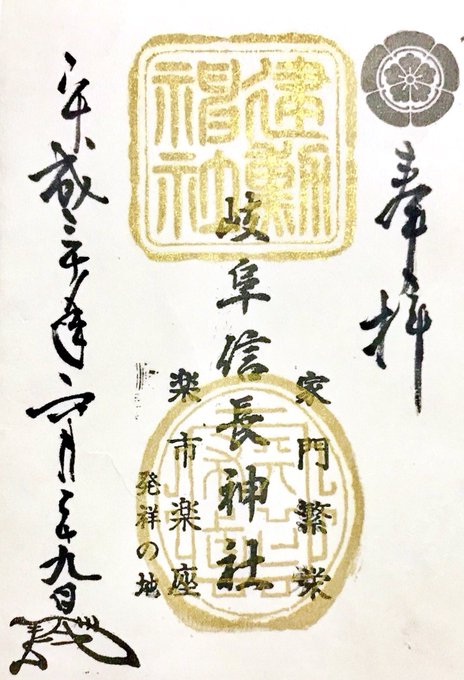 奉拝
建勲
神社
家門繁栄
岐阜信長神社
楽市楽座
発祥の地
平成三十年六月二十九日